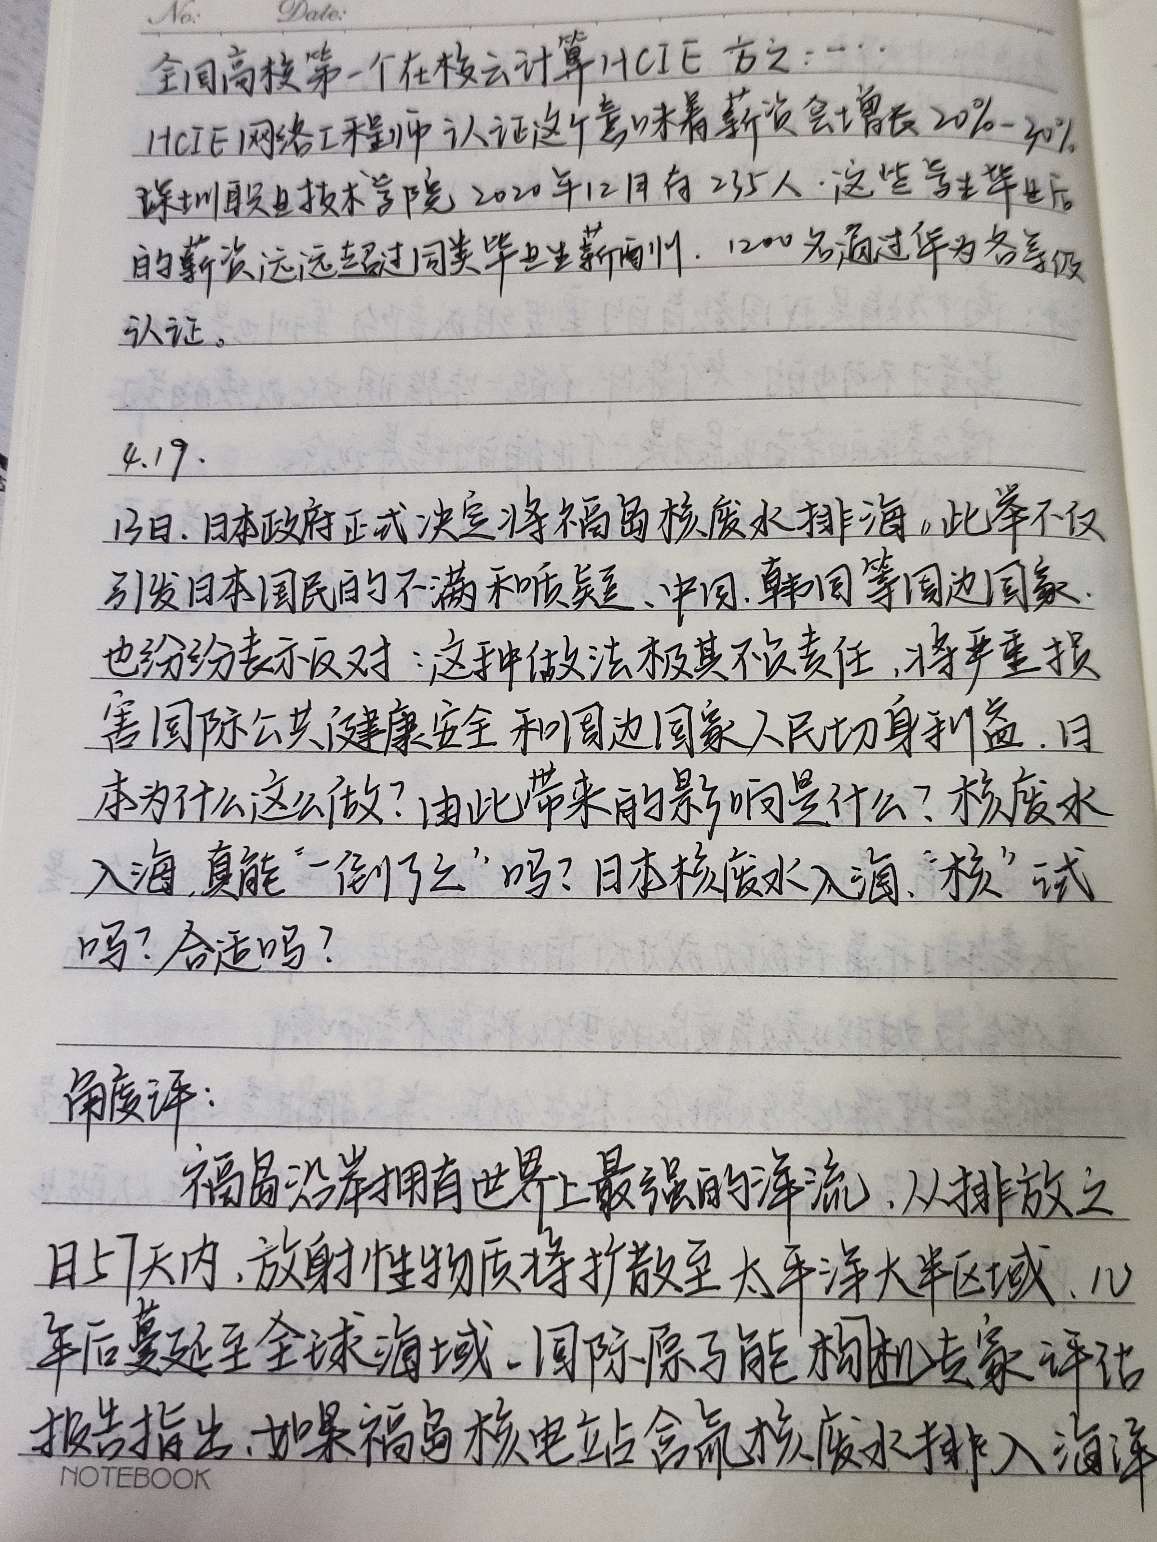 No: Date:
全国高校第一个在校云计算HCIE 方之:一··
HCIE网络工程师认证这个意味着薪资会增长20%-30%
深圳职业技术学院2020年12月有235人.这些学生毕业后
的薪资远远超过同类毕业生薪酬.1200名通过华为各等级
认证。
4.19.
13日.日本政府正式决定将福岛核废水排海。此举不仅
引发日本国民的不满和质疑、中国.韩国等周边国家.
也纷纷表示反对:这种做法极其不负责任,将严重损
害国际公共健康安全和周边国家人民切身利益.日
本为什么这么做?由此带来的影响是什么?核废水
入海,真能“一倒了之”吗?日本核废水入海,“核”试
吗?合适吗?
角度评:
福岛沿岸拥有世界上最强的洋流,从排放之
日57天内,放射性物质将扩散至太平洋大半区域,10
年后蔓延至全球海域.国际原子能机构专家评估
报告指出,如果福岛核电站含氚核废水排入海洋
NOTEBOOK